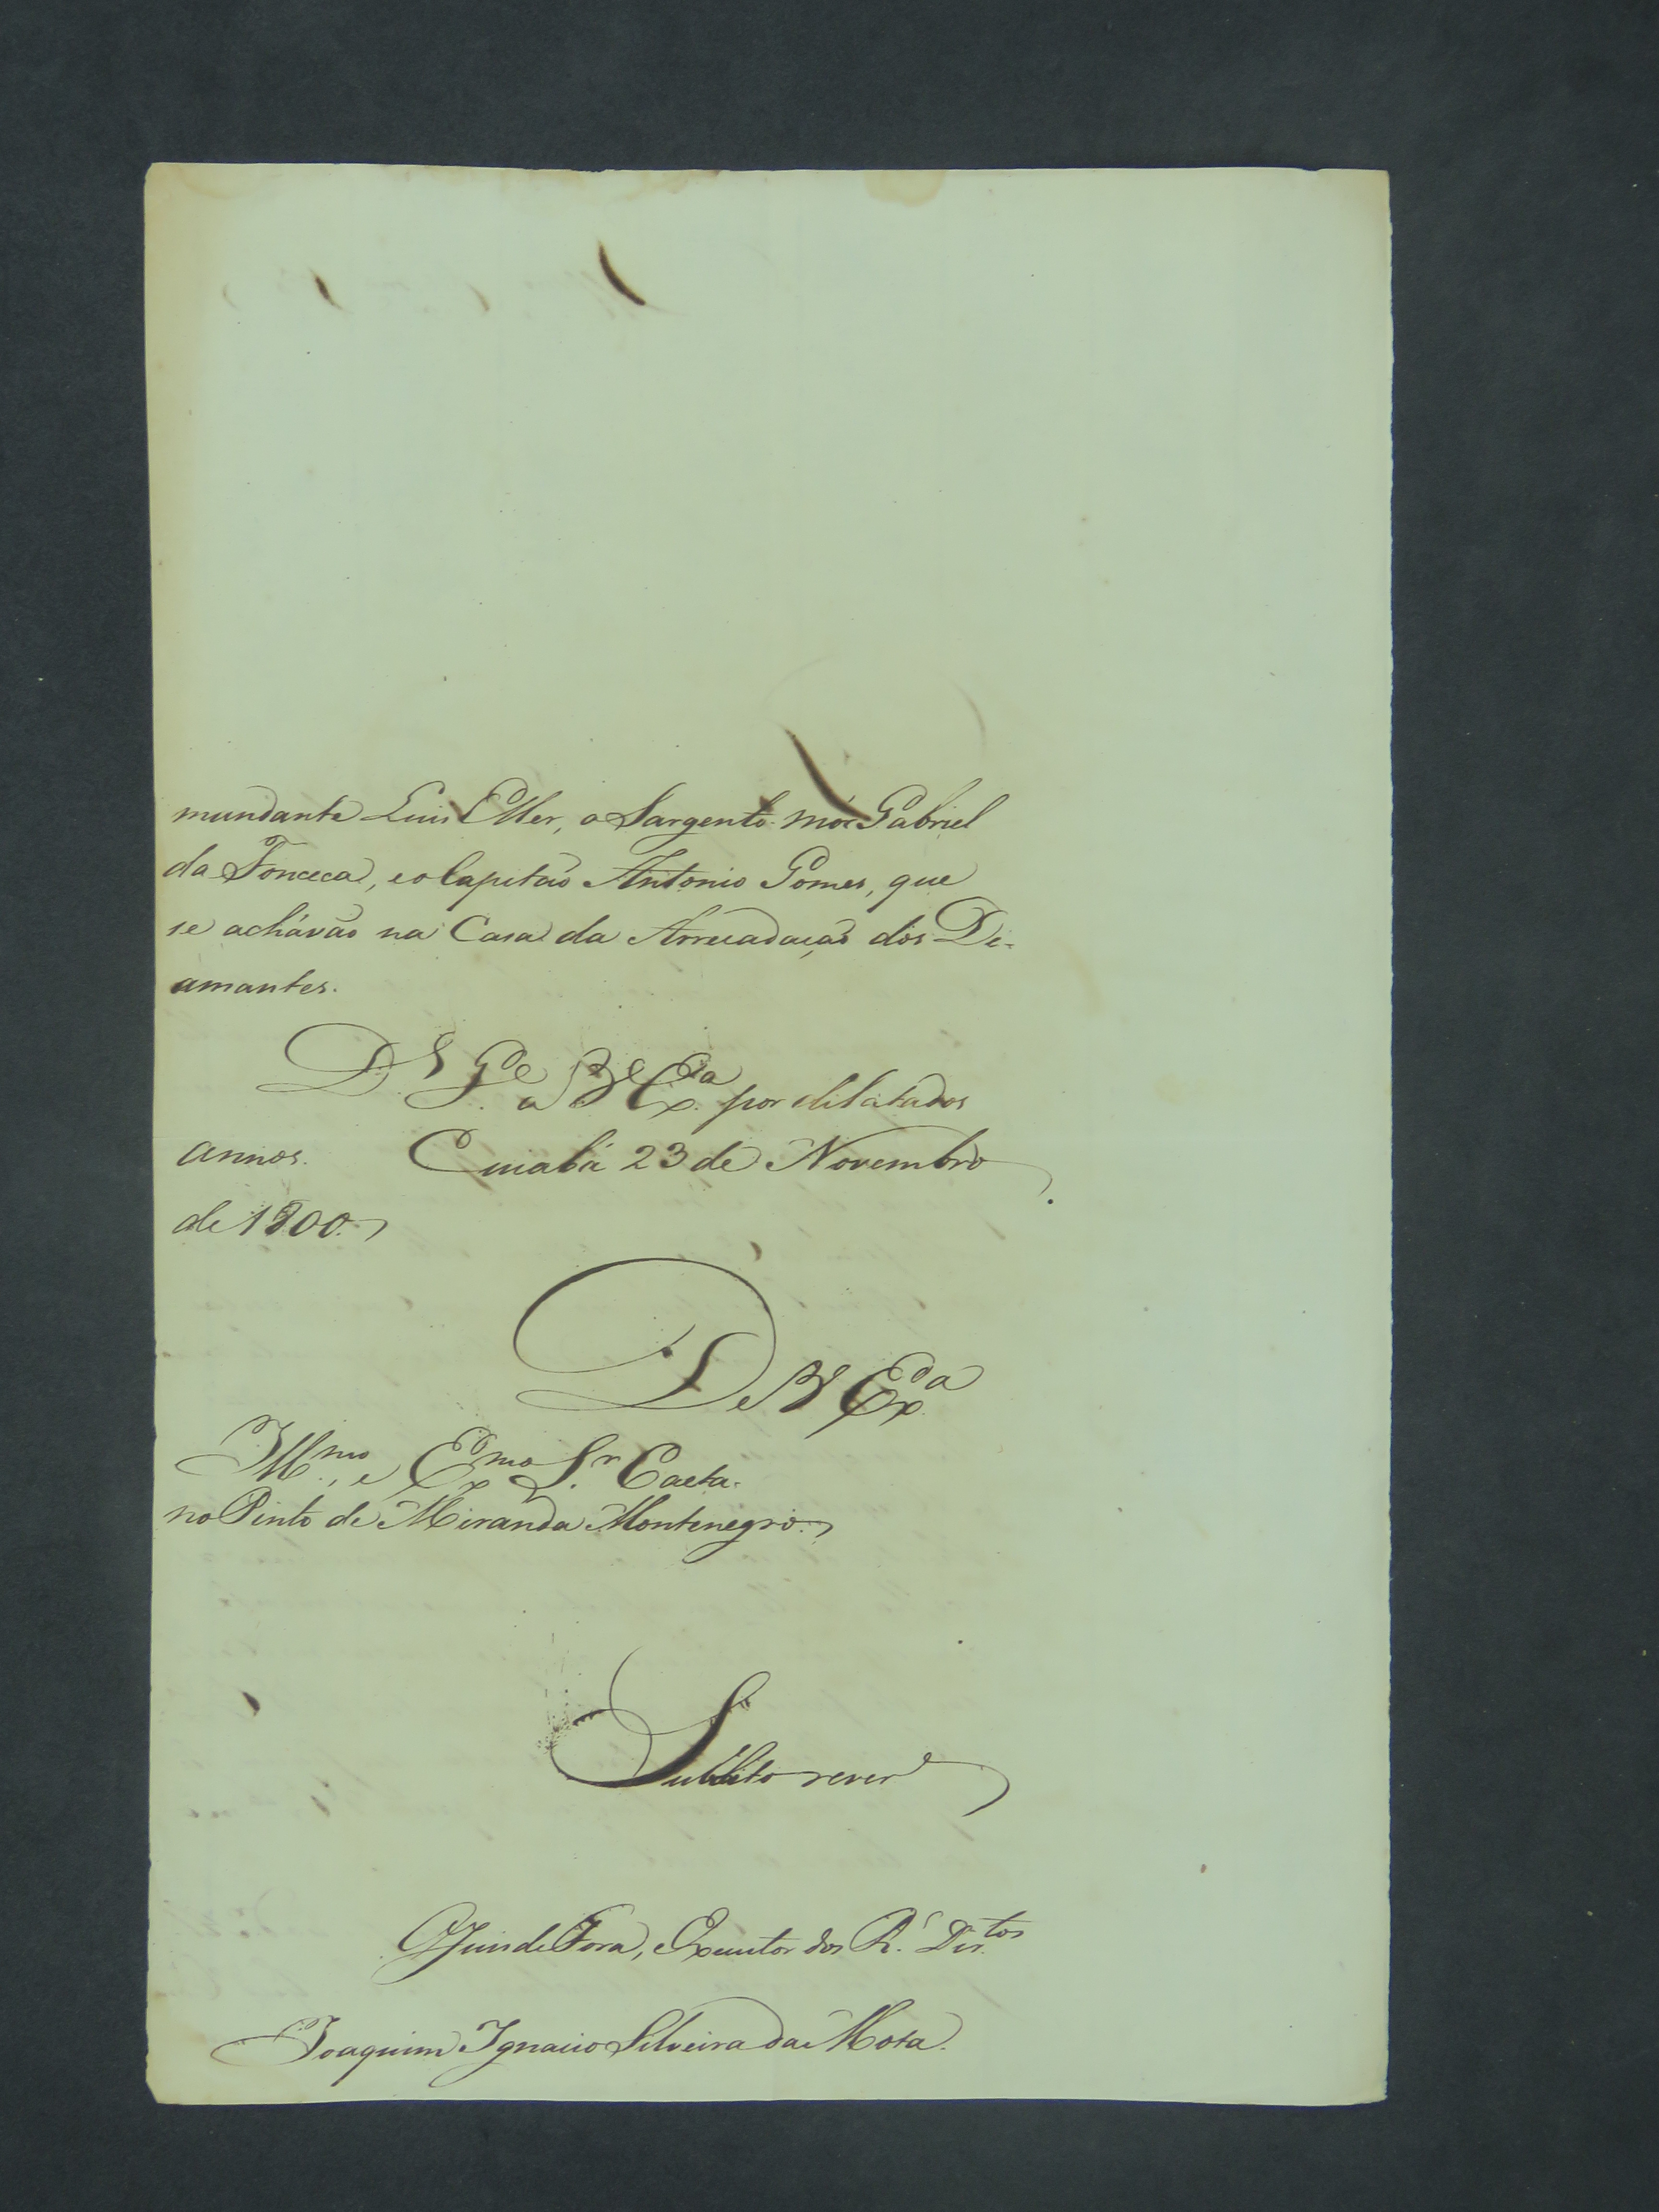 mandante Luis Eller, o Sargento mór Gabriel
da Fonceca, e o Capitaõ Antonio Gomes, que
se achávaõ na Casa da Arrecadaçaõ dos Di-
amantes.
D.s G.e a V Ex.a por dilatados
annos. Cuiabá 23 de Novembro
de 1800.
De V Ex.a
Ill.mo, e Ex.mo S.r Caeta-
no Pinto de Miranda Montenegro.
Subdito rever.e
O Juis de Fora, Executor dos R.s Dir.tos
Joaquim Ignacio Silveira da Mota.